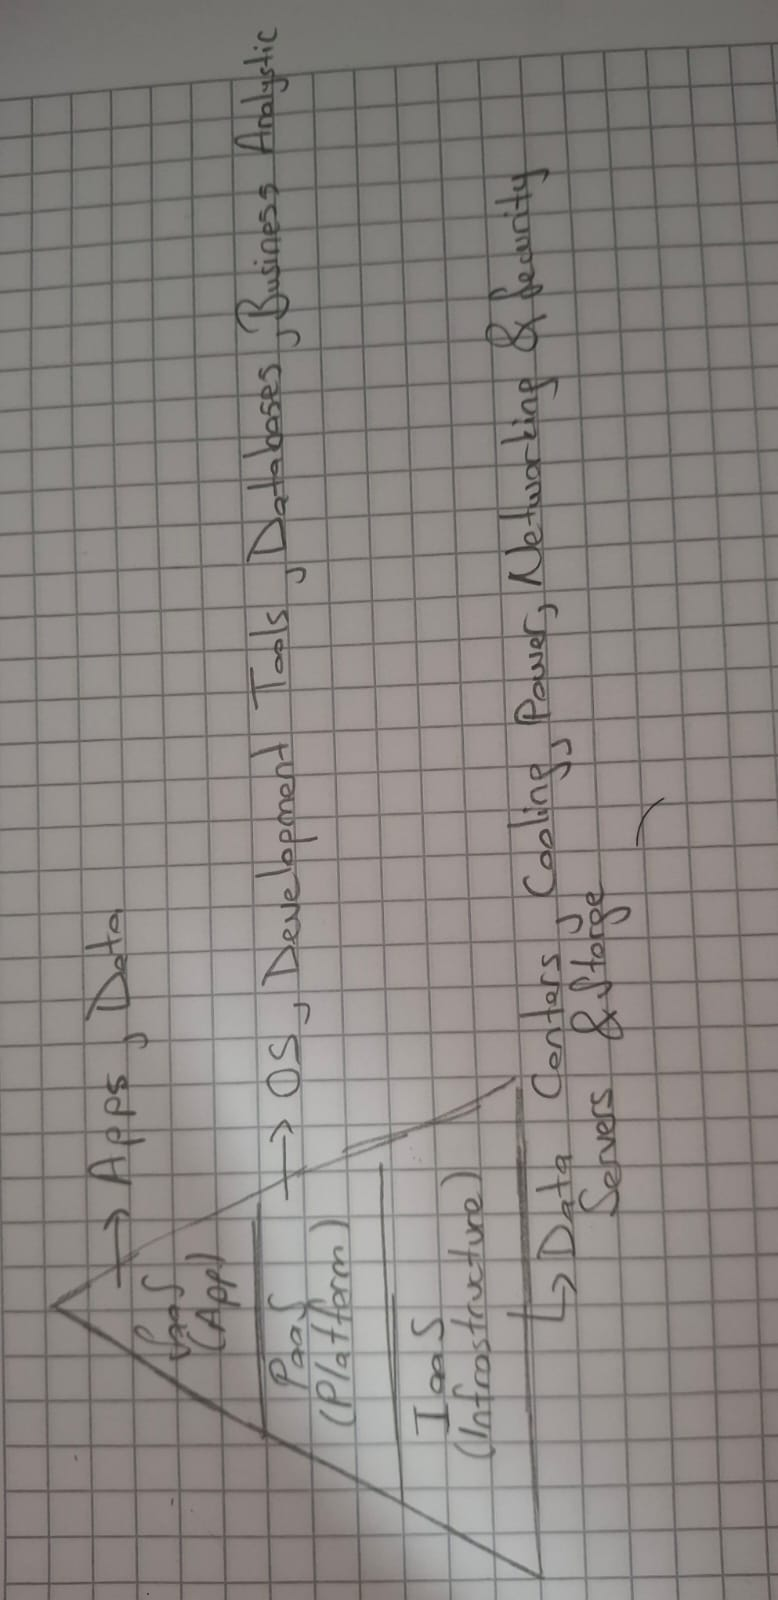 SaaS → Apps, Data
(App)
PaaS → OS, Development Tools, Databases, Business Analystic
(Platform)
IaaS
(Infrastructure)
↳ Data Centers, Cooling, Power, Networking & Security
Servers & Storge